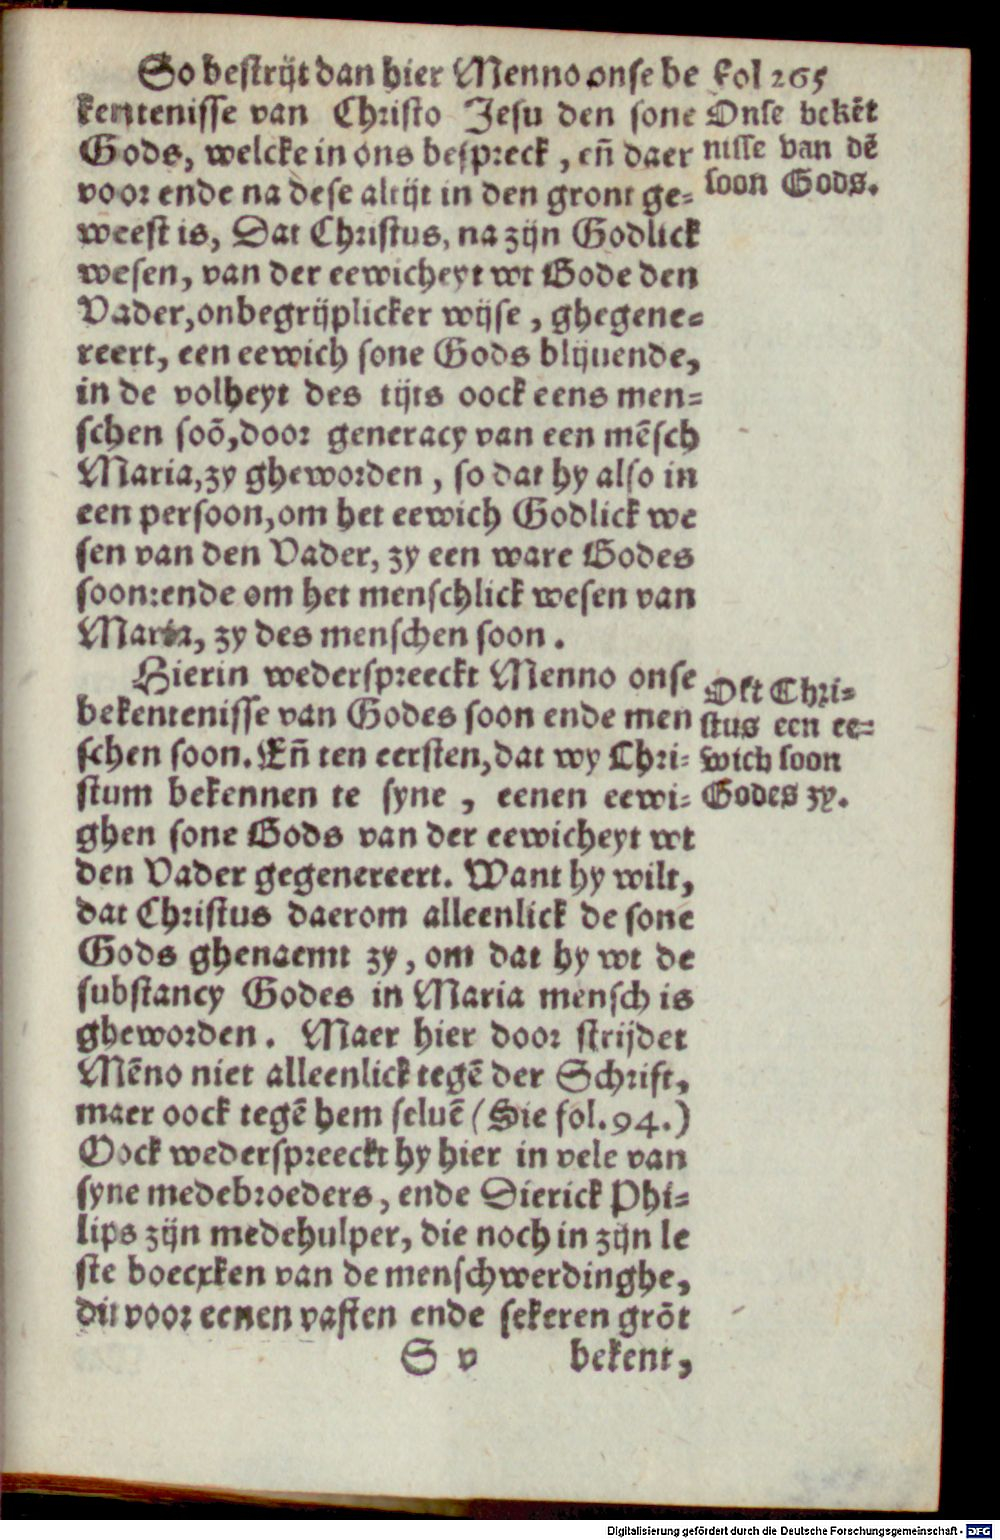 So bestrijt dan hier Menno onse be
kentenisse van Christo Jesu den sone
Gods, welcke in ons bespreck, eñ daer
voor ende na dese altijt in den gront ge-
weest is, Dat Christus, na zijn Godlick
wesen, van der eewicheyt wt Gode den
Vader, onbegrijplicker wijse, ghegene-
reert, een eewich sone Gods blijuende,
in de volheyt des tijts oock eens men-
schen soō, door generacy van een mēsch
Maria, zy gheworden, so dat hy also in
een persoon, om het eewich Godlick we
sen van den Vader, zy een ware Godes
soon: ende om het menschlick wesen van
Maria, zy des menschen soon.
Hierin wederspreeckt Menno onse
bekentenisse van Godes soon ende men
schen soon. Eñ ten eersten, dat wy Chri-
stum bekennen te syne, eenen eewi-
ghen sone Gods van der eewicheyt wt
den Vader gegenereert. Want hy wilt,
dat Christus daerom alleenlick de sone
Gods ghenaemt zy, om dat hy wt de
substancy Godes in Maria mensch is
gheworden. Maer hier door strijdet
Mēno niet alleenlick tegē der Schrift,
maer oock tegē hem seluē (Sie fol. 94.)
Oock wederspreeckt hy hier in vele van
syne medebroeders, ende Dierick Phi-
lips zijn medehulper, die noch in zijn le
ste boecxken van de menschwerdinghe,
dit voor eenen vasten ende sekeren grōt
S v
bekent,
Fol 265
Onse bekēt
nisse van dē
soon Gods.
Oft Chri-
stus een ee-
wich soon
Godes zy.
Digitalisierung gefördert durch die Deutsche Forschungsgemeinschaft - DFG